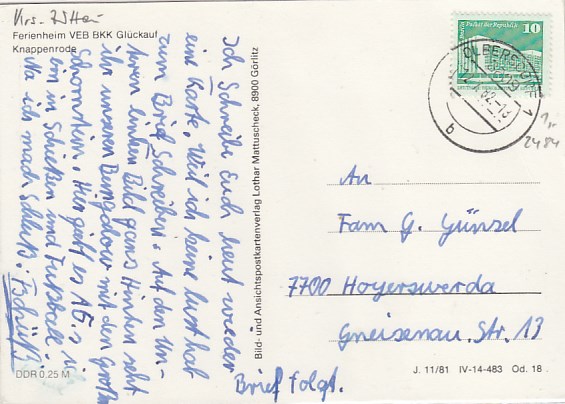 Krs. Zittau
Ferienheim VEB BKK Glückauf
Knappenrode
Ich Schreibe Euch heut wieder
eine Karte, weil ich keine lust hab
zum Brief Schreiben. Auf den Un-
teren linken Bild ganz Hinten seht
ihr unseren Bungalow mit den großen
Schornstein. Hier gibt es AG.s
ein in Schießen und Fußball.
Na ich mach Schluß. Tschüß!
Brief folgt.
DDR 0,25 M
Bild- und Ansichtspostkartenverlag Lothar Mattuscheck, 8900 Görlitz
Palast der Republik
10
82-18
b
1,-
2484
An
Fam G. Günzel
7700 Hoyerswerda
Gneisenau. Str. 13
J. 11/81 IV-14-483 Ord. 18